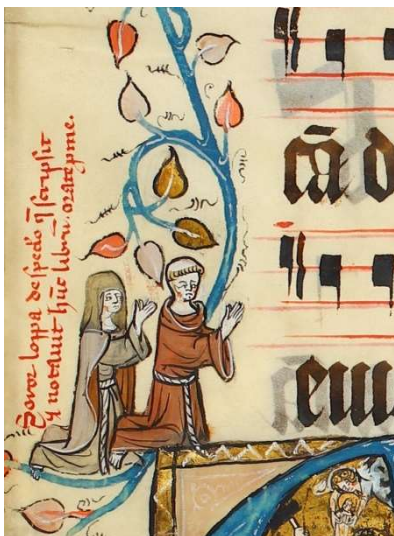 Soror loppa de speclo q̄ scripsit
⁊ notauit hūc librū. orate p me.
cā d